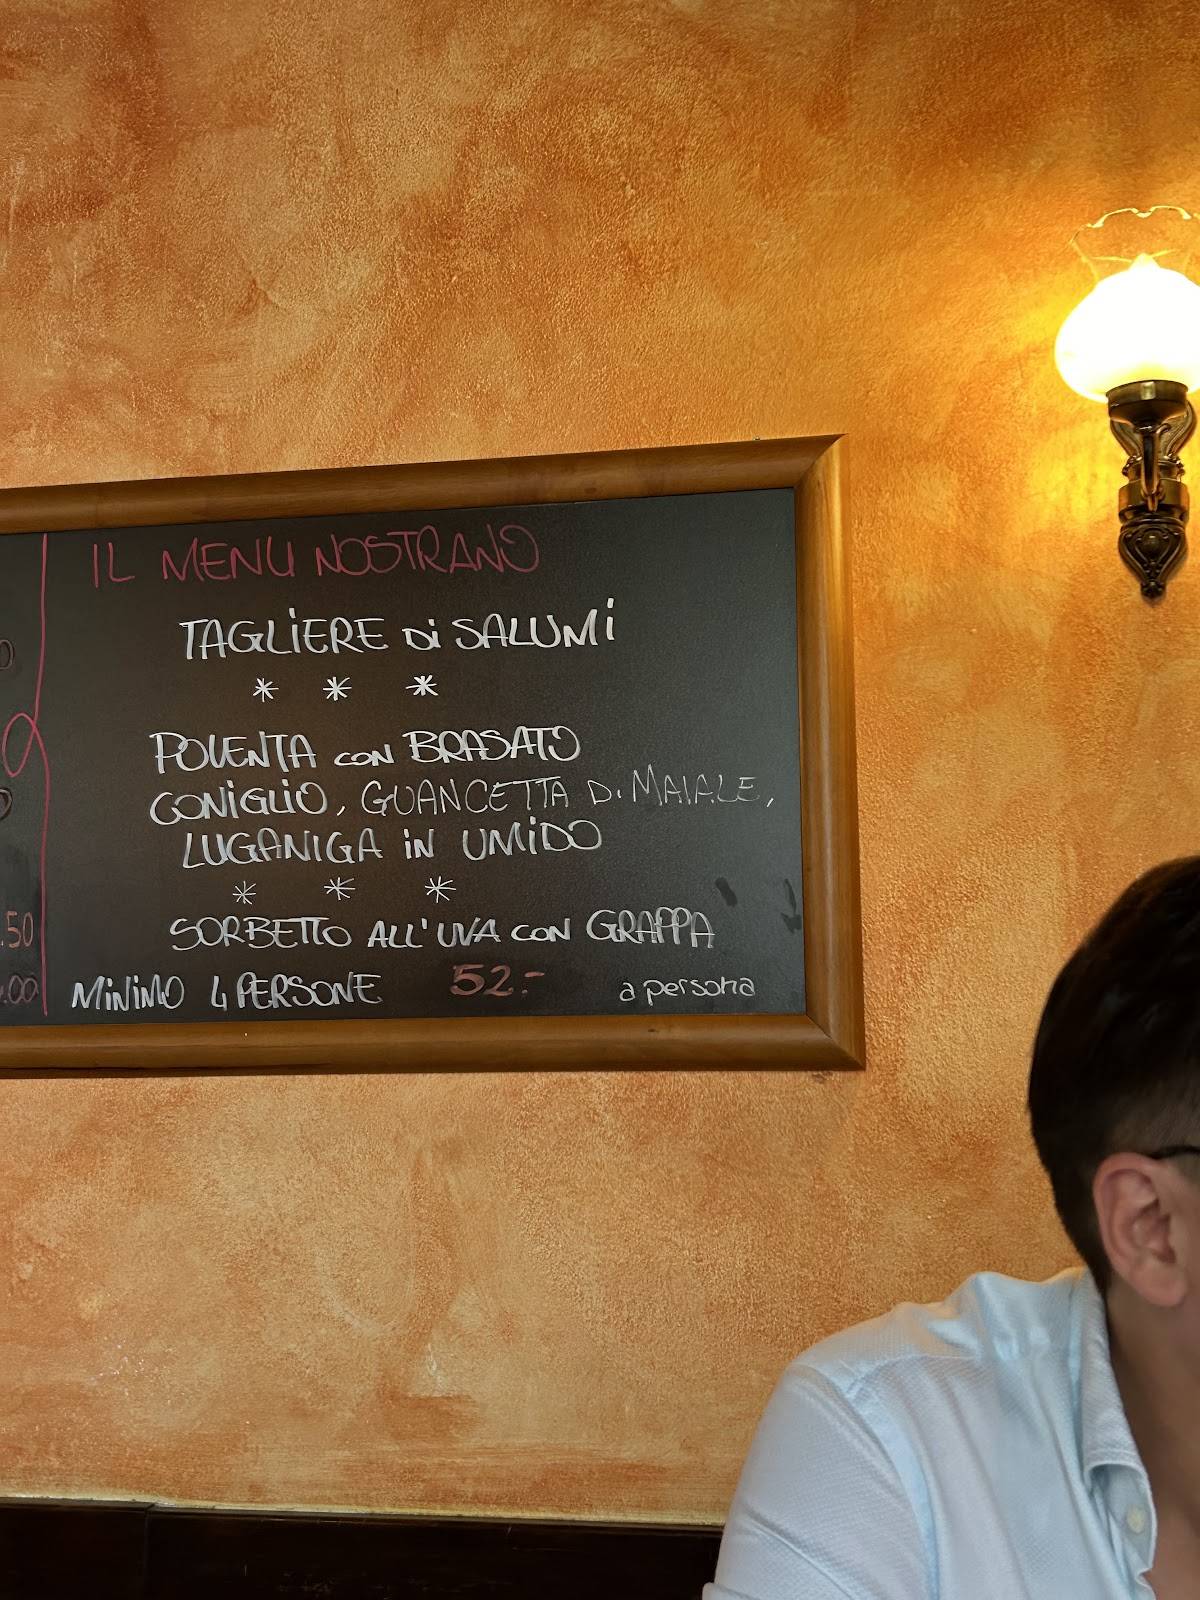 IL MENU NOSTRANO
TAGLIERE Di SALUMi
* * *
POLENTA con BRASATO
CONiGLiO, GUANCETTA Di MAIALE,
LUGANIGA iN UMiDO
* * *
SORBETTO ALL'UVA CON GRAPPA
MiNiMO 4 PERSONE 52.- a persona
.50
.00